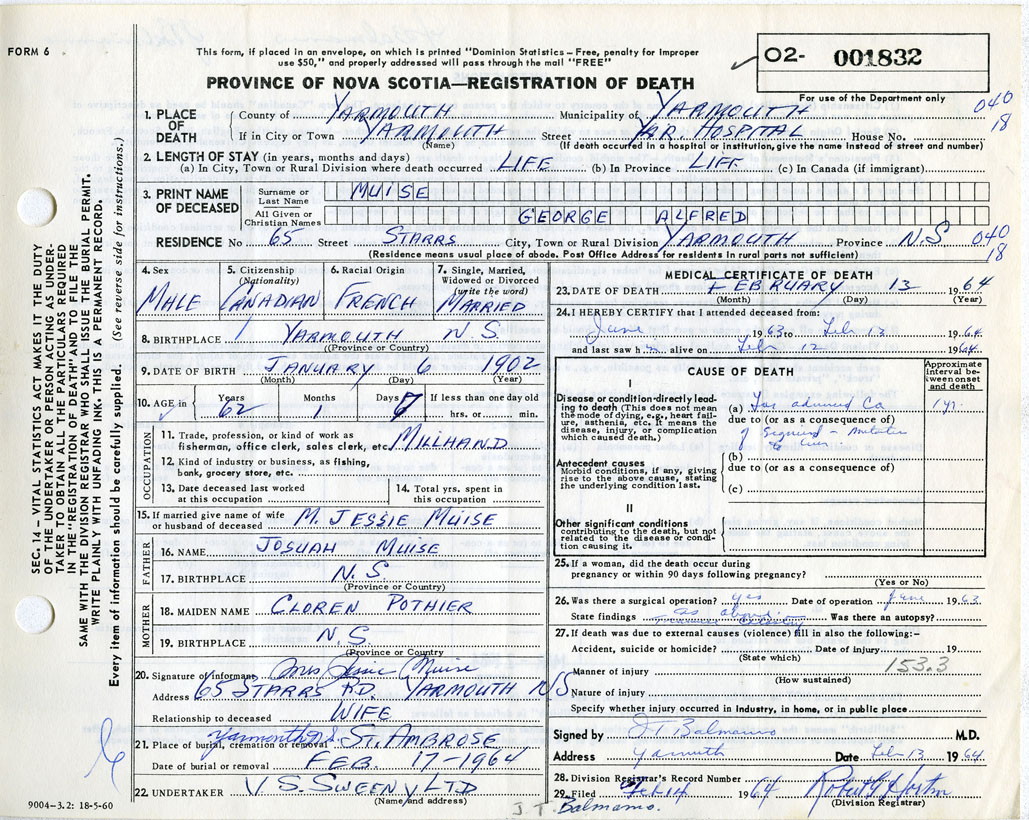 FORM 6
This form, if placed in an envelope, on which is printed "Dominion Statistics – Free, penalty for improper
use $50," and properly addressed will pass through the mail "FREE"
O2- 001832
PROVINCE OF NOVA SCOTIA—REGISTRATION OF DEATH
For use of the Department only
1. PLACE OF DEATH
County of YARMOUTH Municipality of YARMOUTH 040
If in City or Town YARMOUTH Street YAR. HOSPITAL House No. 18
(Name) (If death occurred in a hospital or institution, give the name instead of street and number)
2. LENGTH OF STAY (in years, months and days)
(a) In City, Town or Rural Division where death occurred LIFE (b) In Province LIFE (c) In Canada (if immigrant)
3. PRINT NAME OF DECEASED
Surname or Last Name MUISE
All Given or Christian Names GEORGE ALFRED
RESIDENCE No 65 Street STARRS City, Town or Rural Division YARMOUTH Province N.S 040
(Residence means usual place of abode. Post Office Address for residents in rural parts not sufficient) 18
4. Sex MALE
5. Citizenship (Nationality) CANADIAN
6. Racial Origin FRENCH
7. Single, Married, Widowed or Divorced (write the word) MARRIED
8. BIRTHPLACE YARMOUTH N.S.
(Province or Country)
9. DATE OF BIRTH JANUARY 6 1902
(Month) (Day) (Year)
10. AGE in Years 62 Months 1 Days If less than one day old hrs. or min.
OCCUPATION
11. Trade, profession, or kind of work as
fisherman, office clerk, sales clerk, etc. MILLHAND
12. Kind of industry or business, as fishing,
bank, grocery store, etc.
13. Date deceased last worked
at this occupation
14. Total yrs. spent in
this occupation
15. If married give name of wife
or husband of deceased M. JESSIE MUISE
FATHER
16. NAME JOSUAH MUISE
17. BIRTHPLACE N.S.
(Province or Country)
MOTHER
18. MAIDEN NAME CLOREN POTHIER
19. BIRTHPLACE N.S.
(Province or Country)
20. Signature of informant Mrs Jessie Muise
Address 65 STARRS RD. YARMOUTH N/S
Relationship to deceased WIFE
21. Place of burial, cremation or removal Yarmouth N.S. ST. AMBROSE
Date of burial or removal FEB. 17-1964
22. UNDERTAKER V.S. SWEENY LTD
(Name and address)
9004-3.2: 18-5-60
MEDICAL CERTIFICATE OF DEATH
23. DATE OF DEATH FEBRUARY 13 1964
(Month) (Day) (Year)
24. I HEREBY CERTIFY that I attended deceased from:
June 1963 to Feb 13 1964
and last saw h alive on Feb 12 1964
CAUSE OF DEATH
Approximate interval between onset and death
I
Disease or condition directly leading to death (This does not mean the mode of dying, e.g., heart failure, asthenia, etc. It means the disease, injury, or complication which caused death.)
(a) Far advanced Ca 1 yr.
due to (or as a consequence of)
of Sigmoid –
liver
Antecedent causes
Morbid conditions, if any, giving rise to the above cause, stating the underlying condition last.
(b)
due to (or as a consequence of)
(c)
II
Other significant conditions
contributing to the death, but not related to the disease or condition causing it.
25. If a woman, did the death occur during
pregnancy or within 90 days following pregnancy?
(Yes or No)
26. Was there a surgical operation? yes Date of operation June 1963
State findings as above Was there an autopsy?
27. If death was due to external causes (violence) fill in also the following:–
Accident, suicide or homicide? Date of injury 19
(State which)
Manner of injury 153.3
(How sustained)
Nature of injury
Specify whether injury occurred in industry, in home, or in public place
Signed by J T Balmanno M.D.
Address Yarmouth Date Feb 13 1964
28. Division Registrar's Record Number
29. Filed Feb 14 1964
(Division Registrar)
J. T. Balmanno.
SEC. 14 – VITAL STATISTICS ACT MAKES IT THE DUTY
OF THE UNDERTAKER OR PERSON ACTING AS UNDER-
TAKER TO OBTAIN ALL THE PARTICULARS REQUIRED
IN THE "REGISTRATION OF DEATH" AND TO FILE THE
SAME WITH THE DIVISION REGISTRAR WHO SHALL ISSUE THE BURIAL PERMIT.
WRITE PLAINLY WITH UNFADING INK. THIS IS A PERMANENT RECORD.
Every item of information should be carefully supplied. (See reverse side for instructions.)